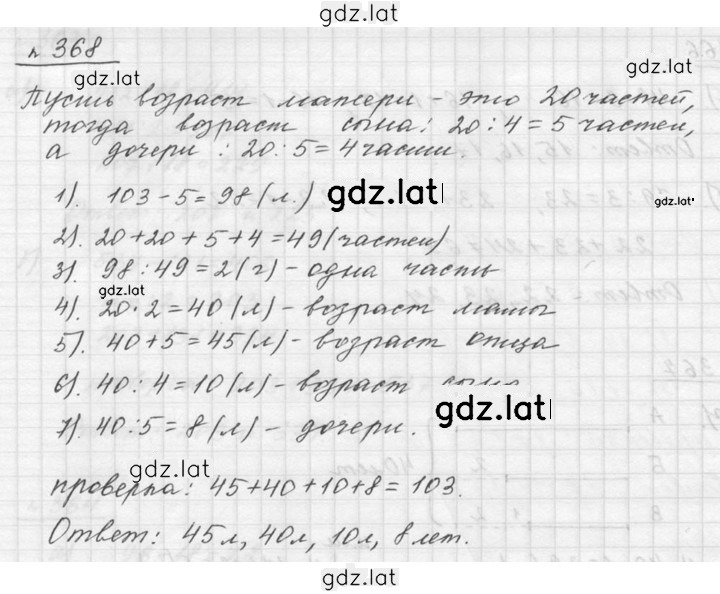 gdz.lat
№ 368
gdz.lat
gdz.lat
Пусть возраст матери - это 20 частей,
тогда возраст сына: 20 : 4 = 5 частей,
а дочери : 20 : 5 = 4 части.
1). 103 - 5 = 98 (л.) gdz.lat
gdz.lat
2). 20 + 20 + 5 + 4 = 49 (частей)
3). 98 : 49 = 2 (г) - одна часть
gdz.lat
4). 20 · 2 = 40 (л) - возраст мамы
5). 40 + 5 = 45 (л) - возраст отца
6). 40 : 4 = 10 (л) - возраст сына
gdz.lat
7). 40 : 5 = 8 (л) - дочери.
gdz.lat
проверка: 45 + 40 + 10 + 8 = 103.
Ответ: 45 л, 40 л, 10 л, 8 лет.
gdz.lat